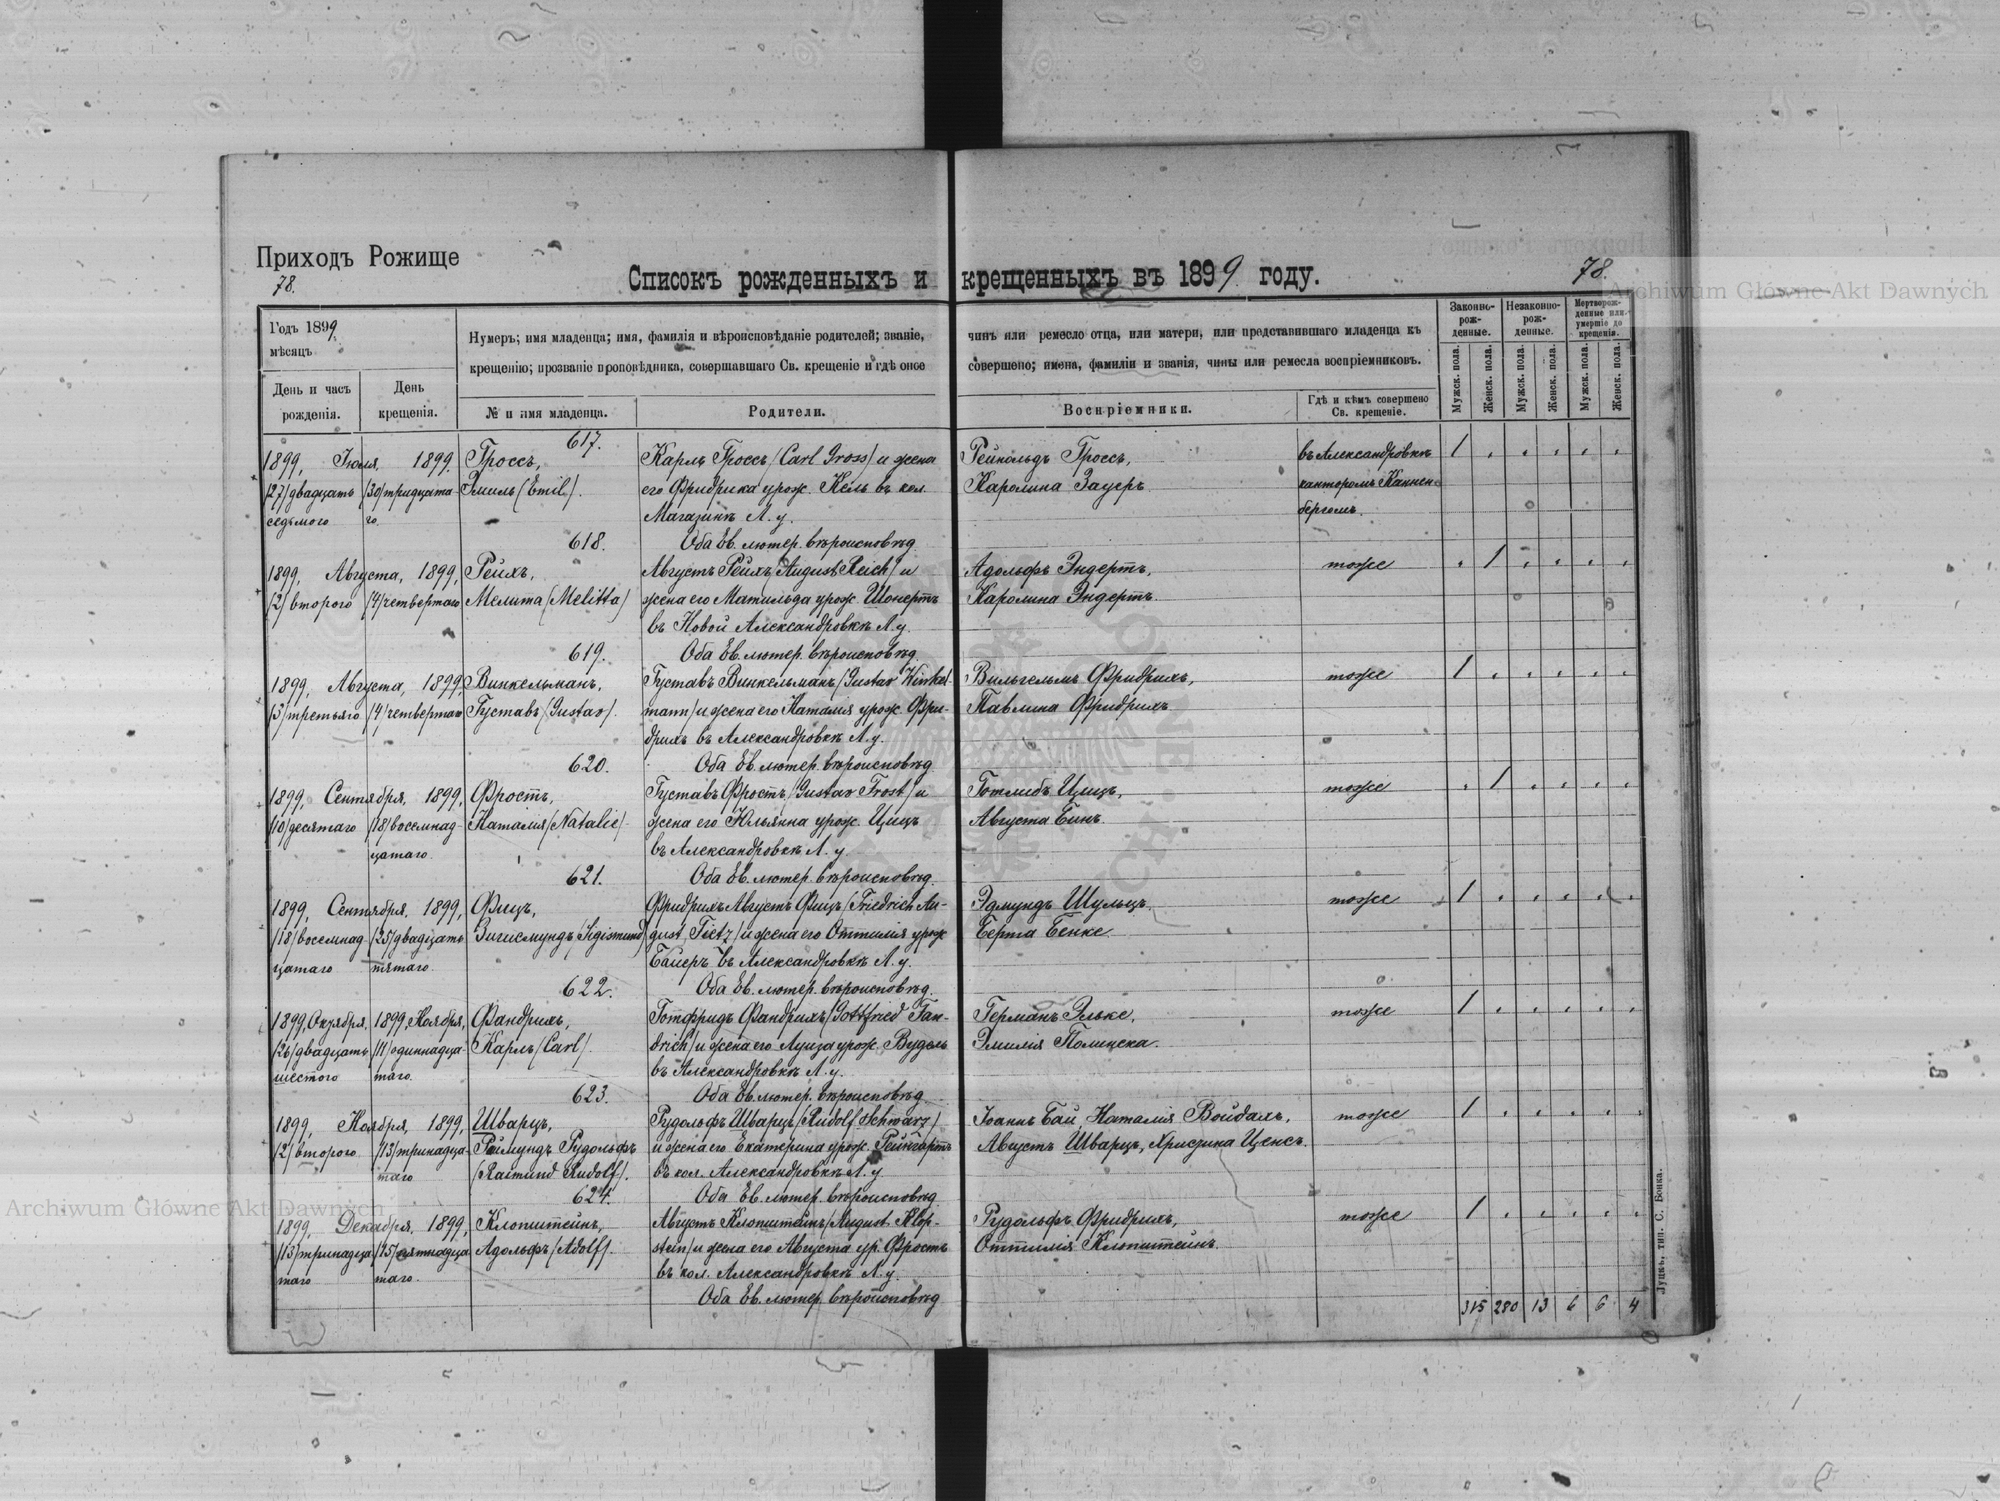 Приходъ Рожище
78.
78.
Списокъ рожденныхъ и крещенныхъ въ 1899 году.
Годъ 1899
мѣсяцъ
День и часъ рожденія.
День крещенія.
Нумеръ; имя младенца; имя, фамилія и вѣроисповѣданіе родителей; званіе, чинъ или ремесло отца, или матери, или представившаго младенца къ
крещенію; прозваніе проповѣдника, совершавшаго Св. крещеніе и гдѣ оное совершено; имена, фамиліи и званія, чины или ремесла воспріемниковъ.
№ и имя младенца.
Родители.
Воспріемники.
Гдѣ и кѣмъ совершено Св. крещеніе.
Законно-рож-денные.
Незаконно-рож-денные.
Мертворож-денные или умершіе до крещенія.
Мужск. пола.
Женск. пола.
Мужск. пола.
Женск. пола.
Мужск. пола.
Женск. пола.
617.
1899, Іюля, 1899, Гроссъ, Карлъ Гроссъ /Carl Gross/ и жена Рейнольдъ Гроссъ, въ Александровкѣ 1
/27/ двадцать /30/ тридцата- Эмиль /Emil/. его Фридрика урож. Кель въ кол. Каролина Зауеръ кантором Каннен-
седьмого го. Магазинкѣ Л. у. бергомъ.
618. Оба Ев. лютер. вѣроисповѣд.
1899, Августа, 1899, Рейхъ, Августъ Рейхъ /August Reich/ и Адольфъ Эндертъ, тоже 1
/2/ второго /4/ четвертаго Мелита /Melitta/ жена его Матильда урож. Шонертъ Каролина Эндертъ.
въ Новой Александровкѣ Л. у.
619. Оба Ев. лютер. вѣроисповѣд.
1899, Августа, 1899, Винкельманъ, Густавъ Винкельманъ /Gustav Winkel- Вильгельмъ Фридрихъ, тоже 1
/3/ третьяго /4/ четвертаго Густавъ /Gustav/. mann/ и жена его Наталія урож. Фри- Павлина Фридрихъ
дрихъ въ Александровкѣ Л. у.
620. Оба Ев. лютер. вѣроисповѣд
1899, Сентября, 1899, Фростъ, Густавъ Фростъ /Gustav Frost/ и Готлибъ Цицъ, тоже 1
/10/ десятаго /18/ восемнад- Наталія /Natalie/ жена его Юльянна урож. Цицъ Августа Бинъ.
цатаго. въ Александровкѣ Л. у.
621. Оба Ев. лютер. вѣроисповѣд.
1899, Сентября, 1899, Фицъ, Фридрихъ Августъ Фицъ /Friedrich Au- Эдмундъ Шульцъ, тоже 1
/18/ восемнад- /25/ двадцать Зигисмундъ /Sigismund/ gust Fietz/ и жена его Оттилія урож. Берта Бенке
цатаго пятаго. Байеръ въ Александровкѣ Л. у.
622. Оба Ев. лютер. вѣроисповѣд.
1899, Октября, 1899, Ноября, Фандрихъ, Готфридъ Фандрихъ /Gottfried Fan- Германъ Эльке, тоже 1
/26/ двадцать /11/ одиннадца- Карлъ /Carl/. drich/ и жена его Луиза урож. Вудель Эмилія Полинска.
шестого таго. въ Александровкѣ Л. у.
623. Оба Ев. лютер. вѣроисповѣд.
1899, Ноября, 1899, Шварцъ, Рудольфъ Шварцъ /Rudolf Schwarz/ Іоаннъ Бай, Наталія Войдахъ, тоже 1
/2/ второго /13/ тринадца- Раймундъ Рудольфъ и жена его Екатерина урож. Рейнгартъ Августъ Шварцъ, Христина Ценсъ.
таго /Raimund Rudolf/. въ кол. Александровкѣ Л. у.
624. Оба Ев. лютер. вѣроисповѣд
1899, Декабря, 1899, Клопштейнъ, Августъ Клопштейнъ /August Klop- Рудольфъ Фридрихъ, тоже 1
/13/ тринадца- /25/ пятнадца- Адольфъ /Adolf/. stein/ и жена его Августа ур. Фростъ Оттилія Клопштейнъ.
таго таго. въ кол. Александровкѣ Л. у.
Оба Ев. лютер. вѣроисповѣд
315 280 13 6 6 4
Луцкъ, тип. С. Бонка.
Archiwum Główne Akt Dawnych
Archiwum Główne Akt Dawnych